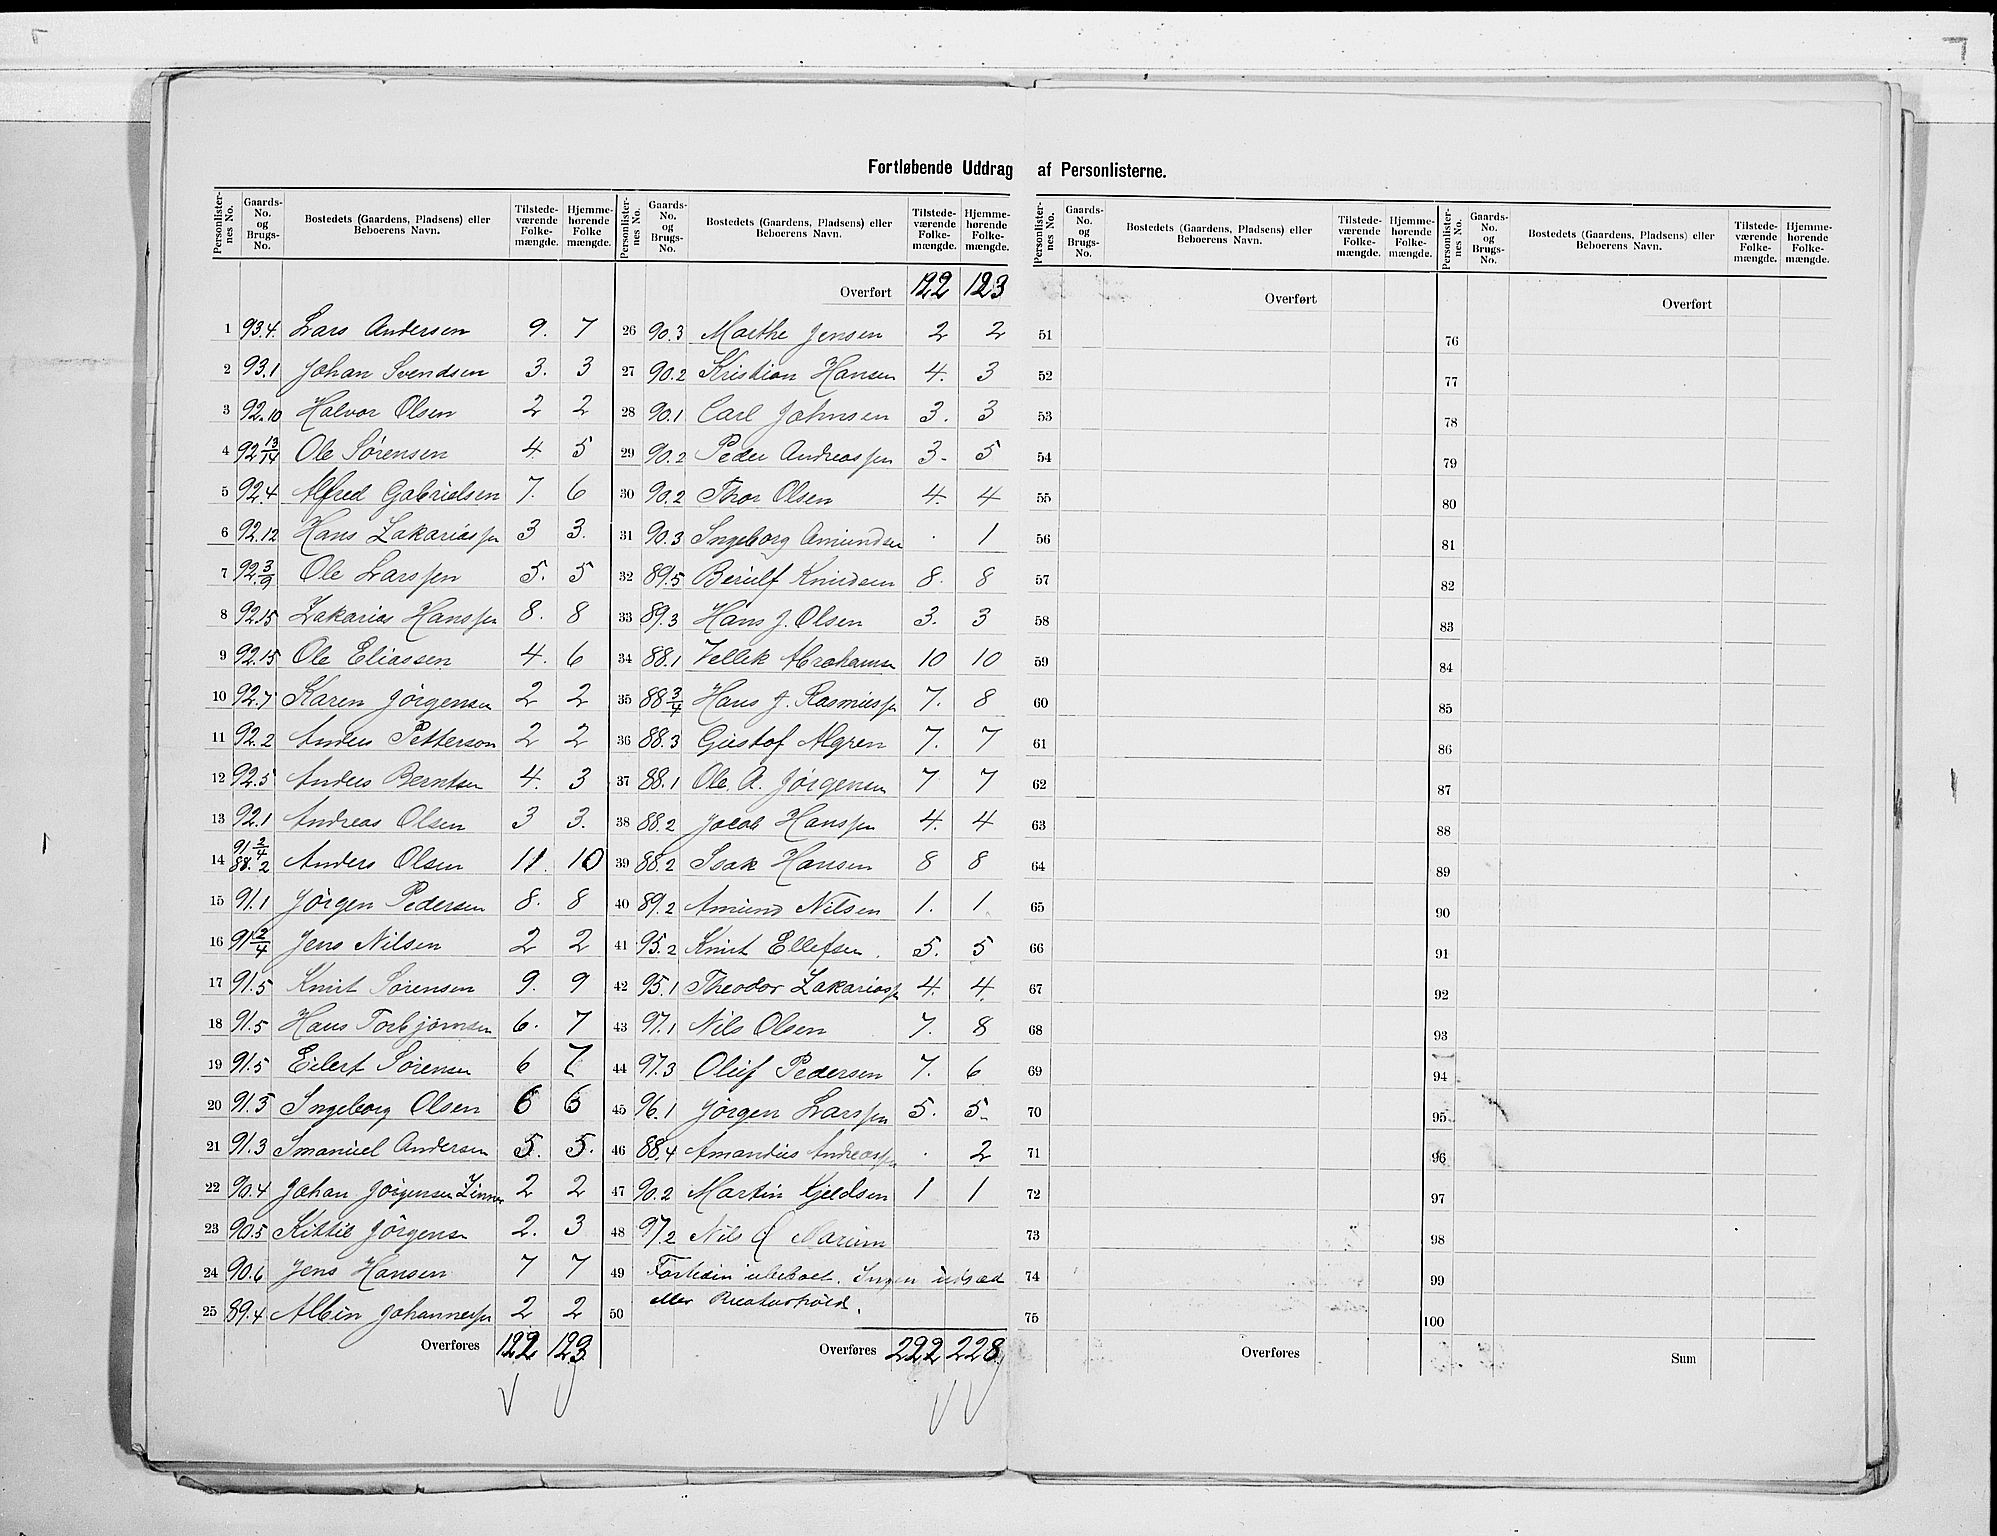 Fortløbende Uddrag af Personlisterne.
Personlister-nes No. Gaards-No. og Brugs-No. Bostedets (Gaardens, Pladsens) eller Beboerens Navn. Tilstede-værende Folke-mængde. Hjemme-hørende Folke mængde.
1 93.4. Lars Andersen 9. 7
2 93.1 Johan Svendsen 3. 3
3 92.10 Halvor Olsen 2 2
4 92 13/14 Ole Sørensen 4. 5
5 92.4 Alfred Gabrielsen 7. 6
6 92.12 Hans Zakariassen 3 3.
7 92 3/9 Ole Larssen 5. 5
8 92.15 Zakarias Hanssen 8. 8
9 92.15 Ole Eliassen 4. 6
10 92.7 Karen Jörgensen 2 2
11 92.2 Anders Petterson 2 2
12 92.5 Anders Berntsen 4. 3
13 92.1 Andreas Olsen 3 3.
14 91 2/4 88.2 Anders Olsen 11. 10
15 91.1 Jörgen Pedersen 8. 8
16 91 2/4 Jens Nilsen 2 2
17 91.5 Knut Sørensen 9. 9
18 91.5 Hans Torbjørnsen 6. 7
19 91.5 Eilert Sørensen 6 7
20 91.3 Ingeborg Olsen 6 6
21 91.3 Imanuel Andersen 5. 5.
22 90.4 Johan Jörgensen 2 2
23 90.5 Kittil Jörgensen 2. 3
24 90.6 Jens Hansen 7 7
25 89.4 Albin Johannessen 2 2
Overføres 122 123
Personlister-nes No. Gaards-No. og Brugs-No. Bostedets (Gaardens, Pladsens) eller Beboerens Navn. Tilstede-værende Folke-mængde. Hjemme-hørende Folke-mængde.
Overført 122 123
26 90.3 Marthe Jensen 2 2
27 90.2 Kristian Hansen 4. 3
28 90.1 Carl Johnsen 3. 3
29 90.2 Peder Andreassen 3. 5
30 90.2 Thor Olsen 4. 4
31 90.3 Ingeborg Amundsen . 1
32 89.5 Berulf Knudsen 8. 8
33 89.3 Hans J. Olsen 3. 3
34 88.1 Abrahamsen 10 10
35 88 3/4 Hans J. Rasmussen 7. 8
36 88.3 Gustof Algren 7. 7
37 88.1 Ole A. Jörgensen 7 7
38 88.2 Jacob Hanssen 4. 4
39 88.2 Isak Hansen 8 8
40 89.2 Amund Nilsen 1. 1
41 95.2 Knut Ellefsen. 5. 5
42 95.1 Theodor Zakariassen 4. 4.
43 97.1 Nils Olsen 7. 8
44 97.3 Oluf Pedersen 7. 6
45 96.1 Jörgen Larssen 5. 5.
46 88.4 Amandus Andreassen . 2
47 90.2 Martin Kjeldsen 1 1
48 97.2 Nils O
49 ubeboet. Ingen udsæd
50 eller Kreaturhold.
Overføres 222 228
Personlister-nes No. Gaards-No. og Brugs-No. Bostedets (Gaardens, Pladsens) eller Beboerens Navn. Tilstede-værende Folke-mængde. Hjemme-hørende Folke-mængde.
Overført
51
52
53
54
55
56
57
58
59
60
61
62
63
64
65
66
67
68
69
70
71
72
73
74
75
Overføres
Personlister-nes No. Gaards-No. og Brugs-No. Bostedets (Gaardens, Pladsens) eller Beboerens Navn. Tilstede-værende Folke-mængde. Hjemme-hørende Folke-mængde.
Overført
76
77
78
79
80
81
82
83
84
85
86
87
88
89
90
91
92
93
94
95
96
97
98
99
100
Sum